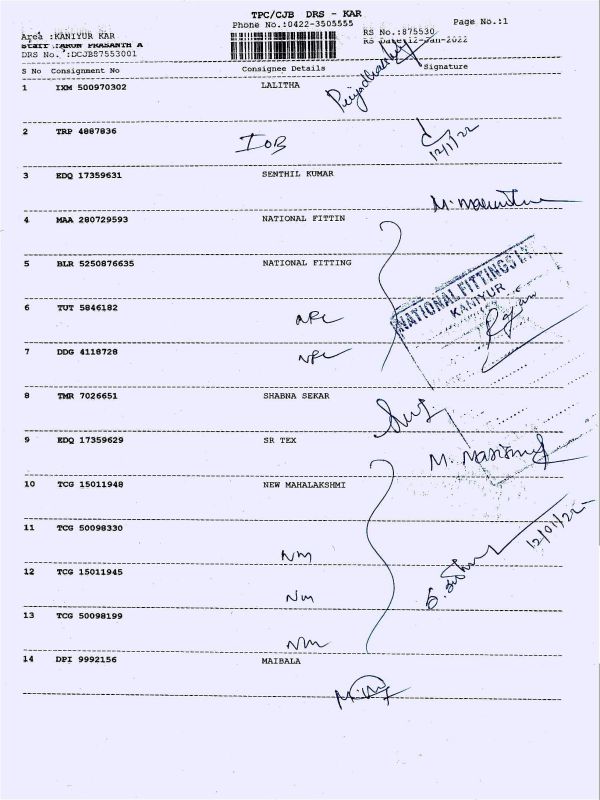 TPC/CJB DRS - KAR
Phone No.:0422-3505555
Page No.:1
Area :KANIYUR KAR
RS No.:875530
Staff :TARUN PRASANTH A
RS Date:12-Jan-2022
DRS No. :DCJB87553001
S No Consignment No Consignee Details Signature
1 IXM 500970302 LALITHA
2 TRP 4887836 IOB
12/1/22
3 EDQ 17359631 SENTHIL KUMAR
4 MAA 280729593 NATIONAL FITTIN
5 BLR 5250876635 NATIONAL FITTING
NATIONAL FITTINGS
KANIYUR
6 TUT 5846182 NFL
7 DDG 4118728 NFL
8 TMR 7026651 SHABNA SEKAR
9 EDQ 17359629 SR TEX
10 TCG 15011948 NEW MAHALAKSHMI
11 TCG 50098330 Nm
12/01/22
12 TCG 15011945 Nm
13 TCG 50098199 Nm
14 DPI 9992156 MAIBALA